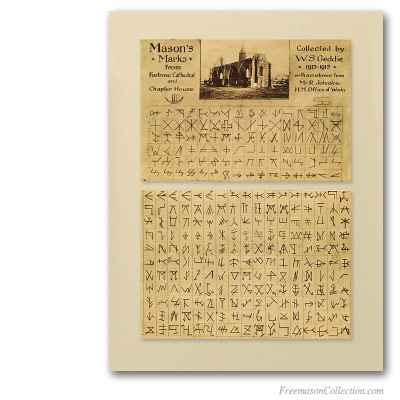 Mason's
• Marks •
from
Fortrose Cathedral
and
Chapter House
Collected by
W.S. Geddie
• 1913-1915 •
with assistance from
Mr. R. Johnston
H.M. Office of Works
FreemasonCollection.com